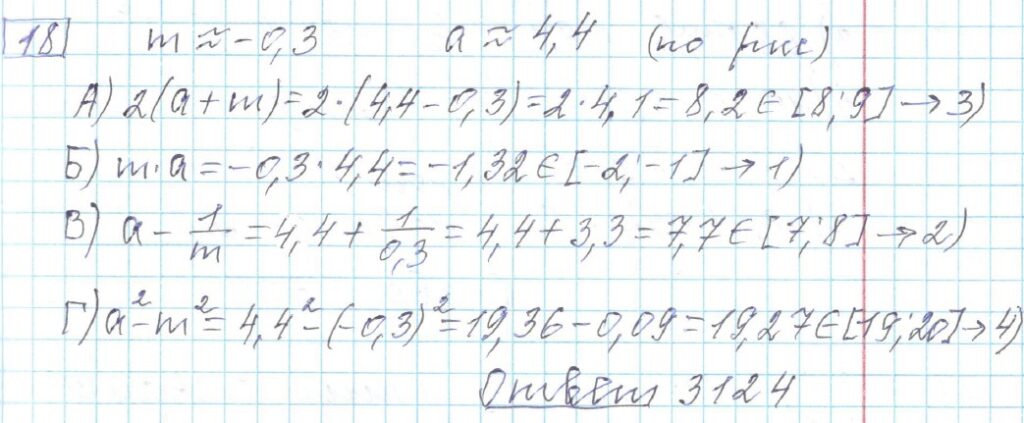 18 m ≈ -0,3 a ≈ 4,4 (по рис)
А) 2(a+m)=2·(4,4-0,3)=2·4,1=8,2∈[8;9]→3)
Б) m·a=-0,3·4,4=-1,32∈[-2;-1]→1)
В) a - 1/m = 4,4 + 1/0,3 = 4,4+3,3=7,7∈[7;8]→2)
Г) a²-m²=4,4²-(-0,3)²=19,36-0,09=19,27∈[19;20]→4)
Ответ 3124